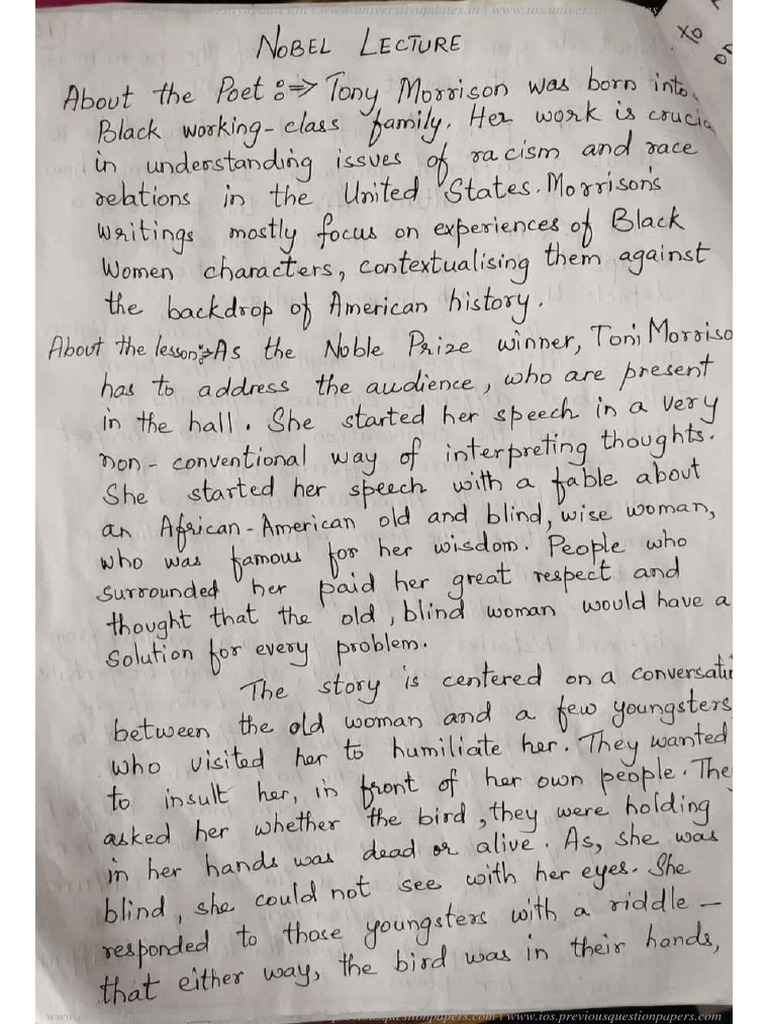 www.universityupdates.in | www.universityupdates.in | www.ios.universityupdates.in
NOBEL LECTURE
XO
on
About the Poet :⇒ Tony Morrison was born into
Black working-class family. Her work is crucia
in understanding issues of racism and race
relations in the United States. Morrison's
writings mostly focus on experiences of Black
Women characters, contextualising them against
the backdrop of American history.
About the lesson:⇒ As the Noble Prize winner, Toni Morriso
has to address the audience, who are present
in the hall. She started her speech in a very
non-conventional way of interpreting thoughts.
She started her speech with a fable about
an African-American old and blind, wise woman,
who was famous for her wisdom. People who
surrounded her paid her great respect and
thought that the old, blind woman would have a
solution for every problem.
The story is centered on a conversati
between the old woman and a few youngsters
who visited her to humiliate her. They wanted
to insult her, in front of her own people. The
asked her whether the bird, they were holding
in her hands was dead or alive. As, she was
blind, she could not see with her eyes. She
responded to those youngsters with a riddle -
that either way, the bird was in their hands,
previousquestionpapers.com | www.ios.previousquestionpapers.com